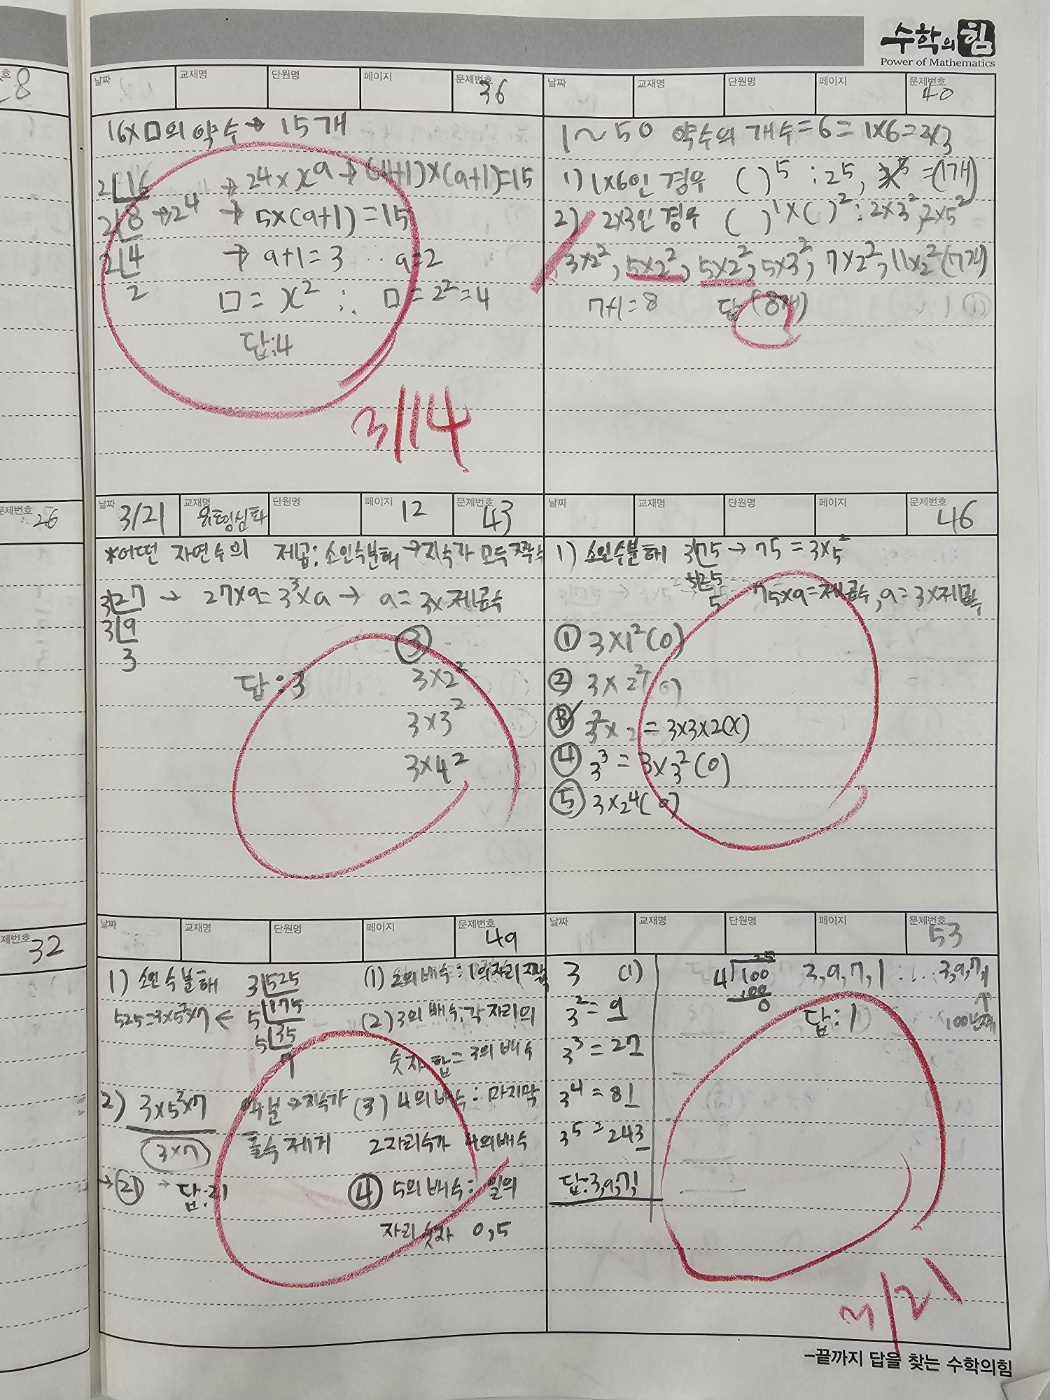 수학의힘
Power of Mathematics
날짜 교재명 단원명 페이지 문제번호 36
16×□의 약수 → 15개
2⌊16 → 2⁴×xᵃ → (4+1)×(a+1)=15
2⌊8 → 2⁴ → 5×(a+1)=15
2⌊4 → a+1=3 a=2
2 □=x² ∴ □=2²=4
답:4
3/14
날짜 교재명 단원명 페이지 문제번호 40
1~50 약수의 개수=6=1×6=2×3
1) 1×6인 경우 ( )⁵ : 25, =(1개)
2) 2×3인 경우 ( )¹×( )² : 2×3², 2×5²
3×2², 5×2², 5×2², 5×3², 7×2², 11×2² (7개)
7+1=8 답 (8개)
날짜 3/21 교재명 유형심화 단원명 페이지 12 문제번호 43
*어떤 자연수의 제곱: 소인수분해 → 지수가 모두 짝수
3⌊27 → 27×a=3³×a → a=3×제곱수
3⌊9 ③
3 3×2²
답:3
3×3²
3×4²
날짜 교재명 단원명 페이지 문제번호 46
1) 소인수분해 3⌊75 → 75=3×5²
5⌊25
5 75×a=제곱수, a=3×제곱수
① 3×1²(0)
② 3×2²(0)
③ 3²×2=3×3×2(x)
④ 3³=3×3²(0)
⑤ 3×2⁴(0)
날짜 교재명 단원명 페이지 문제번호 49
1) 소인수분해 3⌊525
525=3×5²×7 ← 5⌊175
5⌊35
7
2) 3×5²×7 약분→지수가
(3×7) 홀수 제거
→(21) → 답:21
(1) 2의 배수: 1의 자리 짝
(2) 3의 배수: 각 자리의
숫자 합=3의 배수
(3) 4의 배수: 마지막
2자리수가 4의 배수
④ 5의 배수: 일의
자리 숫자 0,5
날짜 교재명 단원명 페이지 문제번호 53
3 (1)
3²=9
3³=27
3⁴=81
3⁵=243
답:3,9,7,1
25
4⌈100 3,9,7,1 ‥‥ 3,9,7,1
100
0 답:1 100번째
3/21
-끝까지 답을 찾는 수학의힘
호 28
문제번호 26
제번호 32